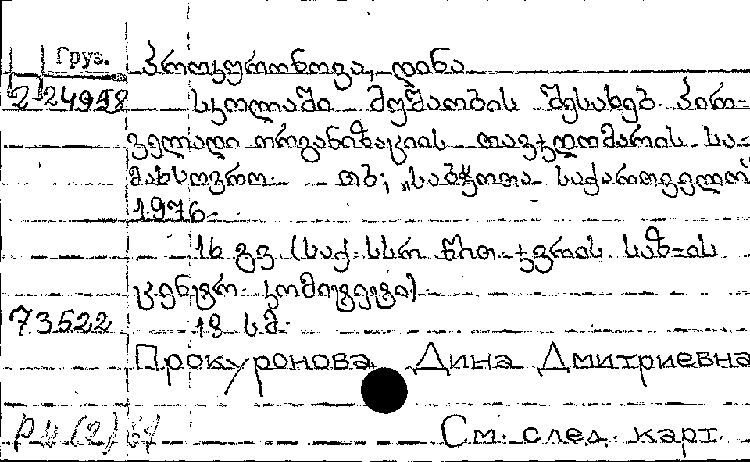 Груз.
პროკურონოვა, დინა
2-24958 სკოლაში მუშაობის შესახებ პირ-
ველადი ორგანიზაციის თავჯდომარის სა-
მახსოვრო. თბ; „საბჭოთა საქართველო
1976.
16 გვ (საქ. სსრ წით. ჯვრის საზ-ის
ცენტრ. კომიტეტი)
73522 18 ს.მ.
Прокуронова Дина Дмитриевна
См. след. карт.